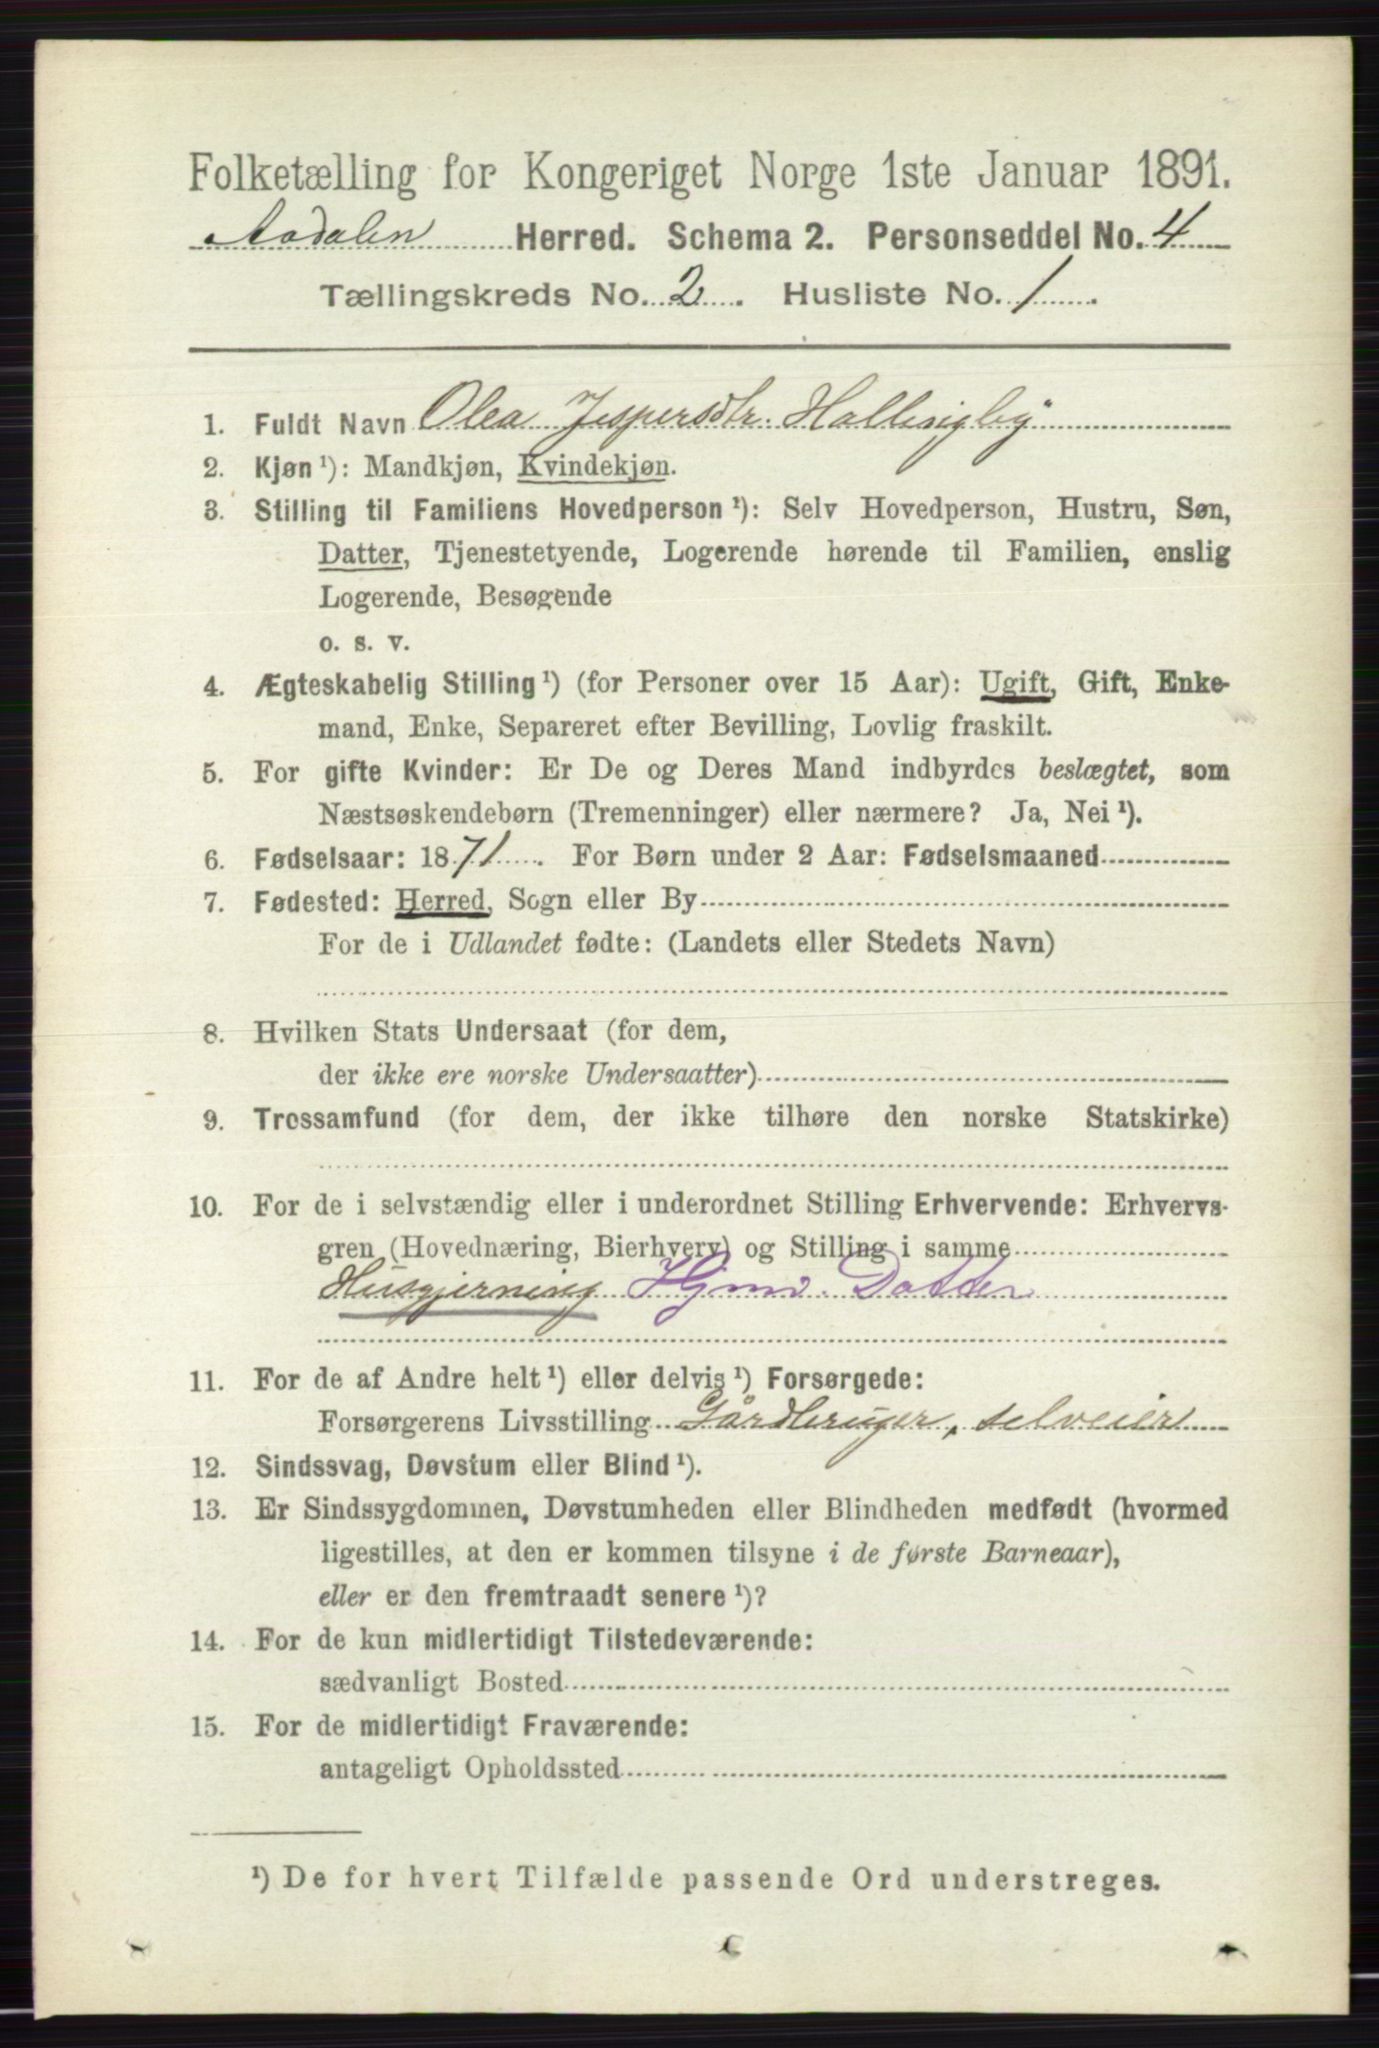 Folketælling for Kongeriget Norge 1ste Januar 1891.
Aadalen Herred. Schema 2. Personseddel No. 4
Tællingskreds No. 2. Husliste No. 1.
1. Fuldt Navn Olea Jespersdtr. Hallingby
2. Kjøn ¹): Mandkjøn, Kvindekjøn.
3. Stilling til Familiens Hovedperson ¹): Selv Hovedperson, Hustru, Søn,
Datter, Tjenestetyende, Logerende hørende til Familien, enslig
Logerende, Besøgende
o. s. v.
4. Ægteskabelig Stilling ¹) (for Personer over 15 Aar): Ugift, Gift, Enke-
mand, Enke, Separeret efter Bevilling, Lovlig fraskilt.
5. For gifte Kvinder: Er De og Deres Mand indbyrdes beslægtet, som
Næstsøskendebørn (Tremenninger) eller nærmere? Ja, Nei ¹).
6. Fødselsaar: 1871. For Børn under 2 Aar: Fødselsmaaned
7. Fødested: Herred, Sogn eller By
For de i Udlandet fødte: (Landets eller Stedets Navn)
8. Hvilken Stats Undersaat (for dem,
der ikke ere norske Undersaatter)
9. Trossamfund (for dem, der ikke tilhøre den norske Statskirke)
10. For de i selvstændig eller i underordnet Stilling Erhvervende: Erhvervs-
gren (Hovednæring, Bierhverv) og Stilling i samme
Husgjerning Hjmv. Datter
11. For de af Andre helt ¹) eller delvis ¹) Forsørgede:
Forsørgerens Livsstilling Gårdbruger, selveier
12. Sindssvag, Døvstum eller Blind ¹).
13. Er Sindssygdommen, Døvstumheden eller Blindheden medfødt (hvormed
ligestilles, at den er kommen tilsyne i de første Barneaar),
eller er den fremtraadt senere ¹)?
14. For de kun midlertidigt Tilstedeværende:
sædvanligt Bosted
15. For de midlertidigt Fraværende:
antageligt Opholdssted
¹) De for hvert Tilfælde passende Ord understreges.